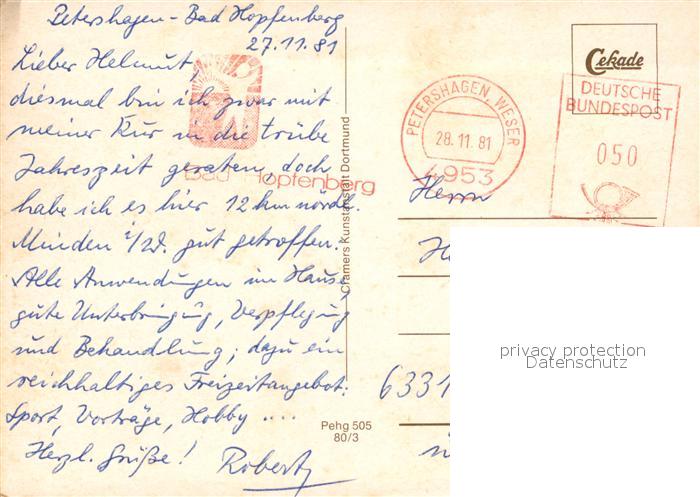 Petershagen-Bad Hopfenberg
27.11.81
Lieber Helmut,
diesmal bin ich zwar mit
meiner Kur in die trübe
Jahreszeit geraten, doch
habe ich es hier 12 km nördl.
Minden i/W. gut getroffen.
Alle Anwendungen im Hause,
gute Unterbringung, Verpflegung
und Behandlung; dazu ein
reichhaltiges Freizeitangebot:
Sport, Vorträge, Hobby ....
Herzl. Grüße! Robert
Bad Hopfenberg
Cramers Kunstanstalt Dortmund
Pehg 505
80/3
Cekade
PETERSHAGEN, WESER
28.11.81
4953
DEUTSCHE
BUNDESPOST
050
Herrn
H
6331
privacy protection
Datenschutz